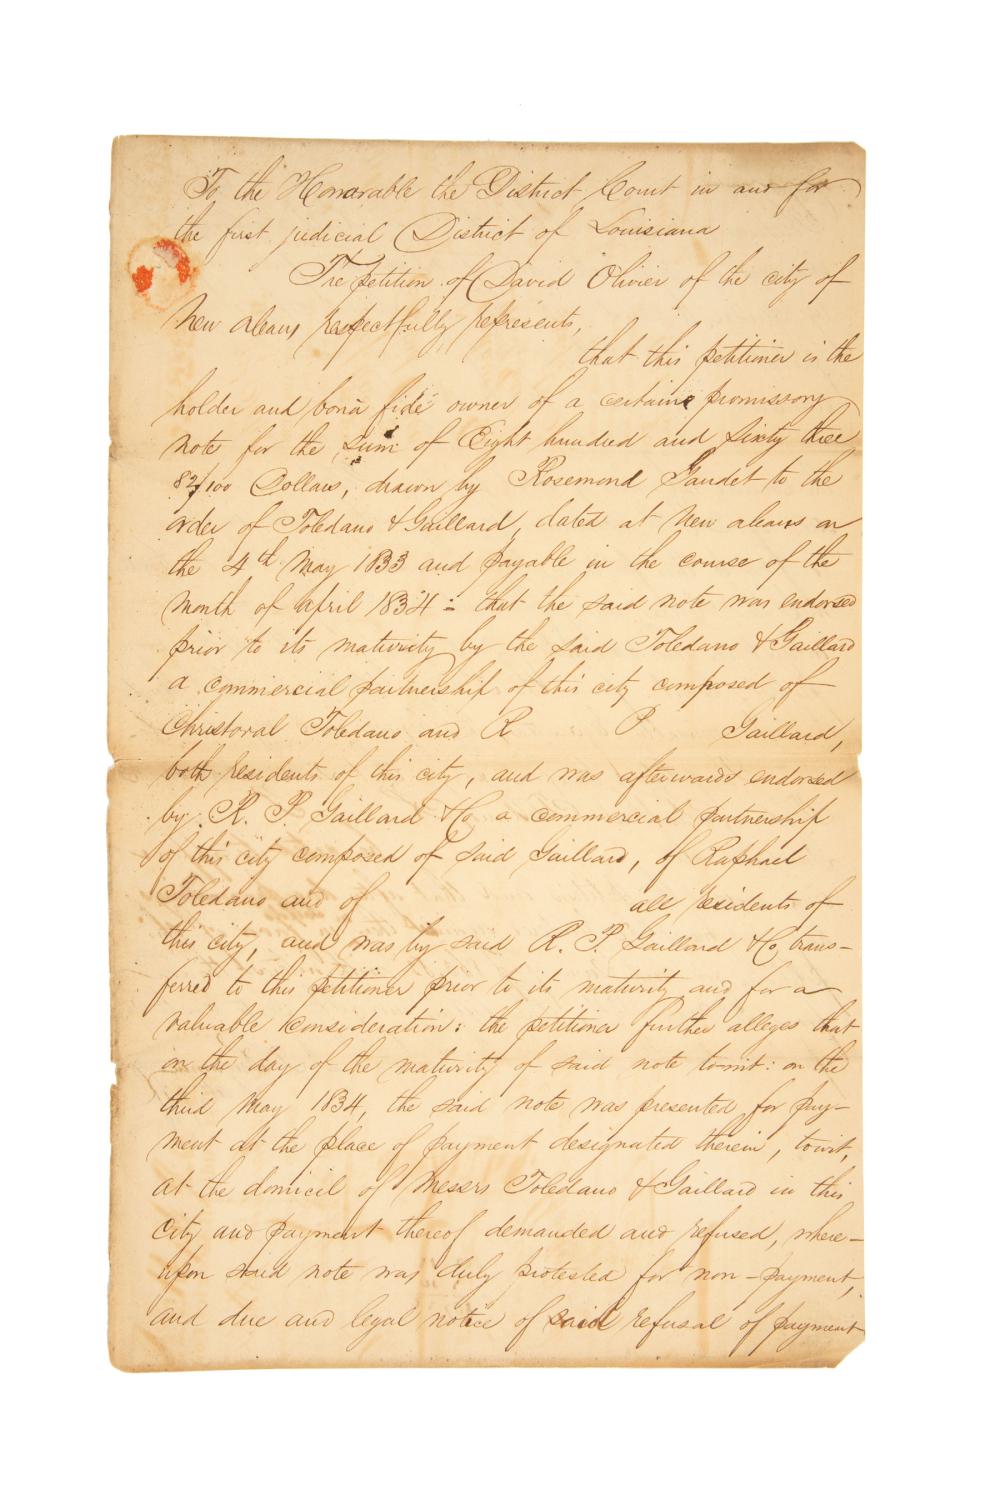 To the Honorable the District Court in and for
the first judicial District of Louisiana
The petition of David Olivier of the city of
New Orleans respectfully represents,
that this petitioner is the
holder and bonâ fide owner of a certain promissory
note for the sum of Eight hundred and sixty three
82/100 Dollars, drawn by Rosemond Gaudet to the
order of Toledano & Gaillard, dated at New Orleans on
the 4th May 1833 and payable in the course of the
month of April 1834: that the said note was endorsed
prior to its maturity by the said Toledano & Gaillard
a commercial partnership of this city composed of
Christoval Toledano and R P Gaillard,
both residents of this city, and was afterwards endorsed
by R. P. Gaillard & Co, a commercial partnership
of this city composed of said Gaillard, of Raphael
Toledano and of all residents of
this city, and was by said R. P. Gaillard & Co, trans-
ferred to this petitioner prior to its maturity and for a
valuable consideration: the petitioner further alleges that
on the day of the maturity of said note to wit: on the
third May 1834, the said note was presented for pay-
ment at the place of payment designated therein, towit,
at the domicil of Messrs Toledano & Gaillard in this
city and payment thereof demanded and refused, where-
upon said note was duly protested for non-payment,
and due and legal notice of said refusal of payment